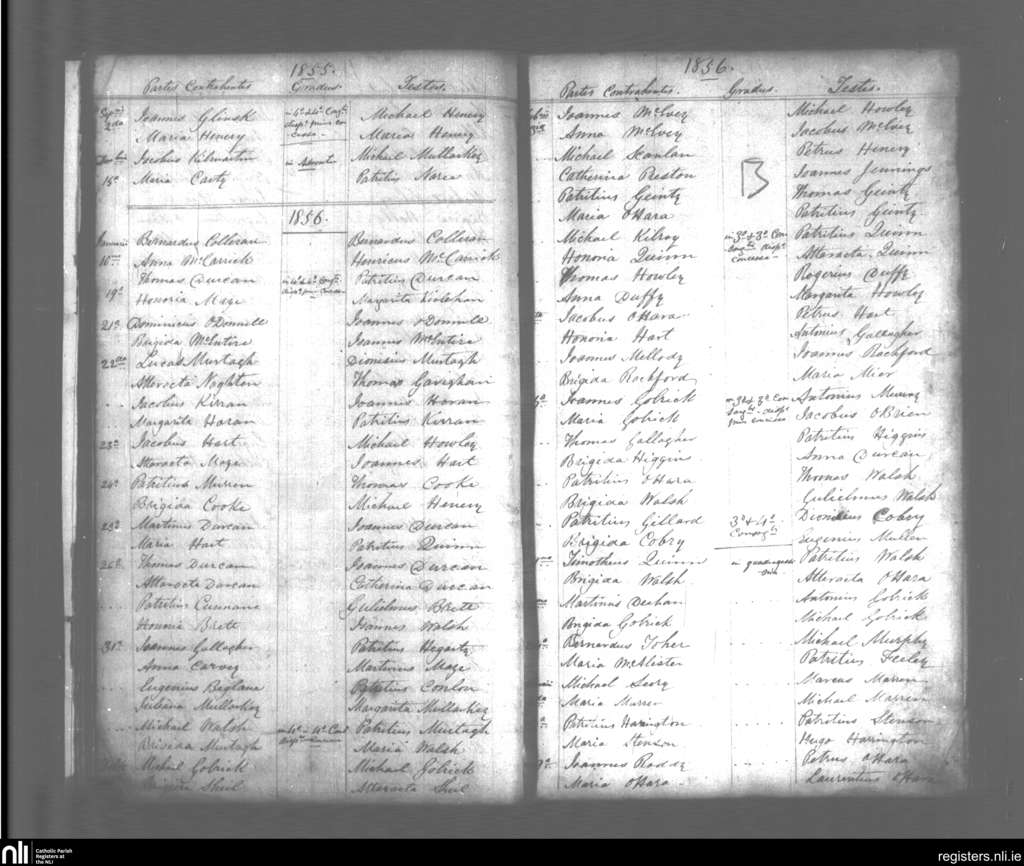 1855.
Partes Contrahentes Gradus. Testes.
Joannes Glinsk Michael Henery
2da Maria Henery Maria Henery
Jacobus Kilmartin Michael Mullarkey
18a Maria Carty Patritius
1856.
Januarii Bernardus Colleran Bernardus Colleran
10 Anna McCarrick Henricus McCarrick
Thomas Durcan Patritius Durcan
19a Honoria Mage Margarita
21a Dominicus O'Donnell Joannes O'Donnell
Brigida McIntire Joannes McIntire
22da Lucas Murtagh Dionisius Murtagh
Atteracta Naghton Thomas Gavighan
Jacobus Kirran Joannes Horan
Margarita Horan Patritius Kirran
23a Jacobus Hart Michael Howley
Atteracta Mage Joannes Hart
24a Patritius Murren Thomas Cooke
Brigida Cooke Michael Henery
25a Martinus Durcan Joannes Durcan
Maria Hart Patritius Quinn
26a Thomas Durcan Joannes Durcan
Atteracta Durcan Catherina Durcan
Patritius Cunnane Gulielmus Brett
Honoria Brett Joannes Walsh
31a Joannes Gallagher Patritius Hegarty
Anna Carvey Martinus Mage
Eugenius Patritius Conlon
Mullarkey Margarita Mullarkey
Michael Walsh Patritius Murtagh
Brigida Murtagh Maria Walsh
Michael Golrick Michael Golrick
Atteracta
1856.
Partes Contrahentes. Gradus. Testes.
Joannes McEvey Michael Howley
Anna McEvey Jacobus McEvey
Michael Scanlan Petrus Henery
Catherina Reston B Joannes Jennings
Patritius Geinty Thomas Geinty
Maria O'Hara Patritius Geinty
Michael Kilroy in 3o + 3o Con Patritius Quinn
Honoria Quinn concessa Atteracta Quinn
Thomas Howley Rogerius Duffy
Anna Duffy Margarita Howley
Jacobus O'Hara Petrus Hart
Honoria Hart Antonius Gallagher
Joannes Mellody Joannes Rochford
Brigida Rochford Maria
Joannes Golrick in 3o + 3o Con Antonius
Maria Golrick Jacobus O'Brien
Thomas Gallagher Patritius Higgins
Brigida Higgins Anna Durcan
Patritius O'Hara Thomas Walsh
Brigida Walsh Gulielmus Walsh
Patritius Gillard 3o + 4o Dionisius Cobry
Brigida Cobry Eugenius Mullen
Timotheus Quinn Patritius Walsh
Brigida Walsh Atteracta O'Hara
Martinus Deehan Antonius Golrick
Brigida Golrick Michael Golrick
Bernardus Toher Michael Murphy
Maria McAlester Patritius Feeley
Michael Marcus Marren
Maria Marren Michael Marren
Patritius Harington Patritius Stenson
Maria Stenson Hugo Harrington
Joannes Roddy Petrus O'Hara
Maria O'Hara Laurentius O'Hara
nli
Catholic Parish
Registers at
the NLI
registers.nli.ie